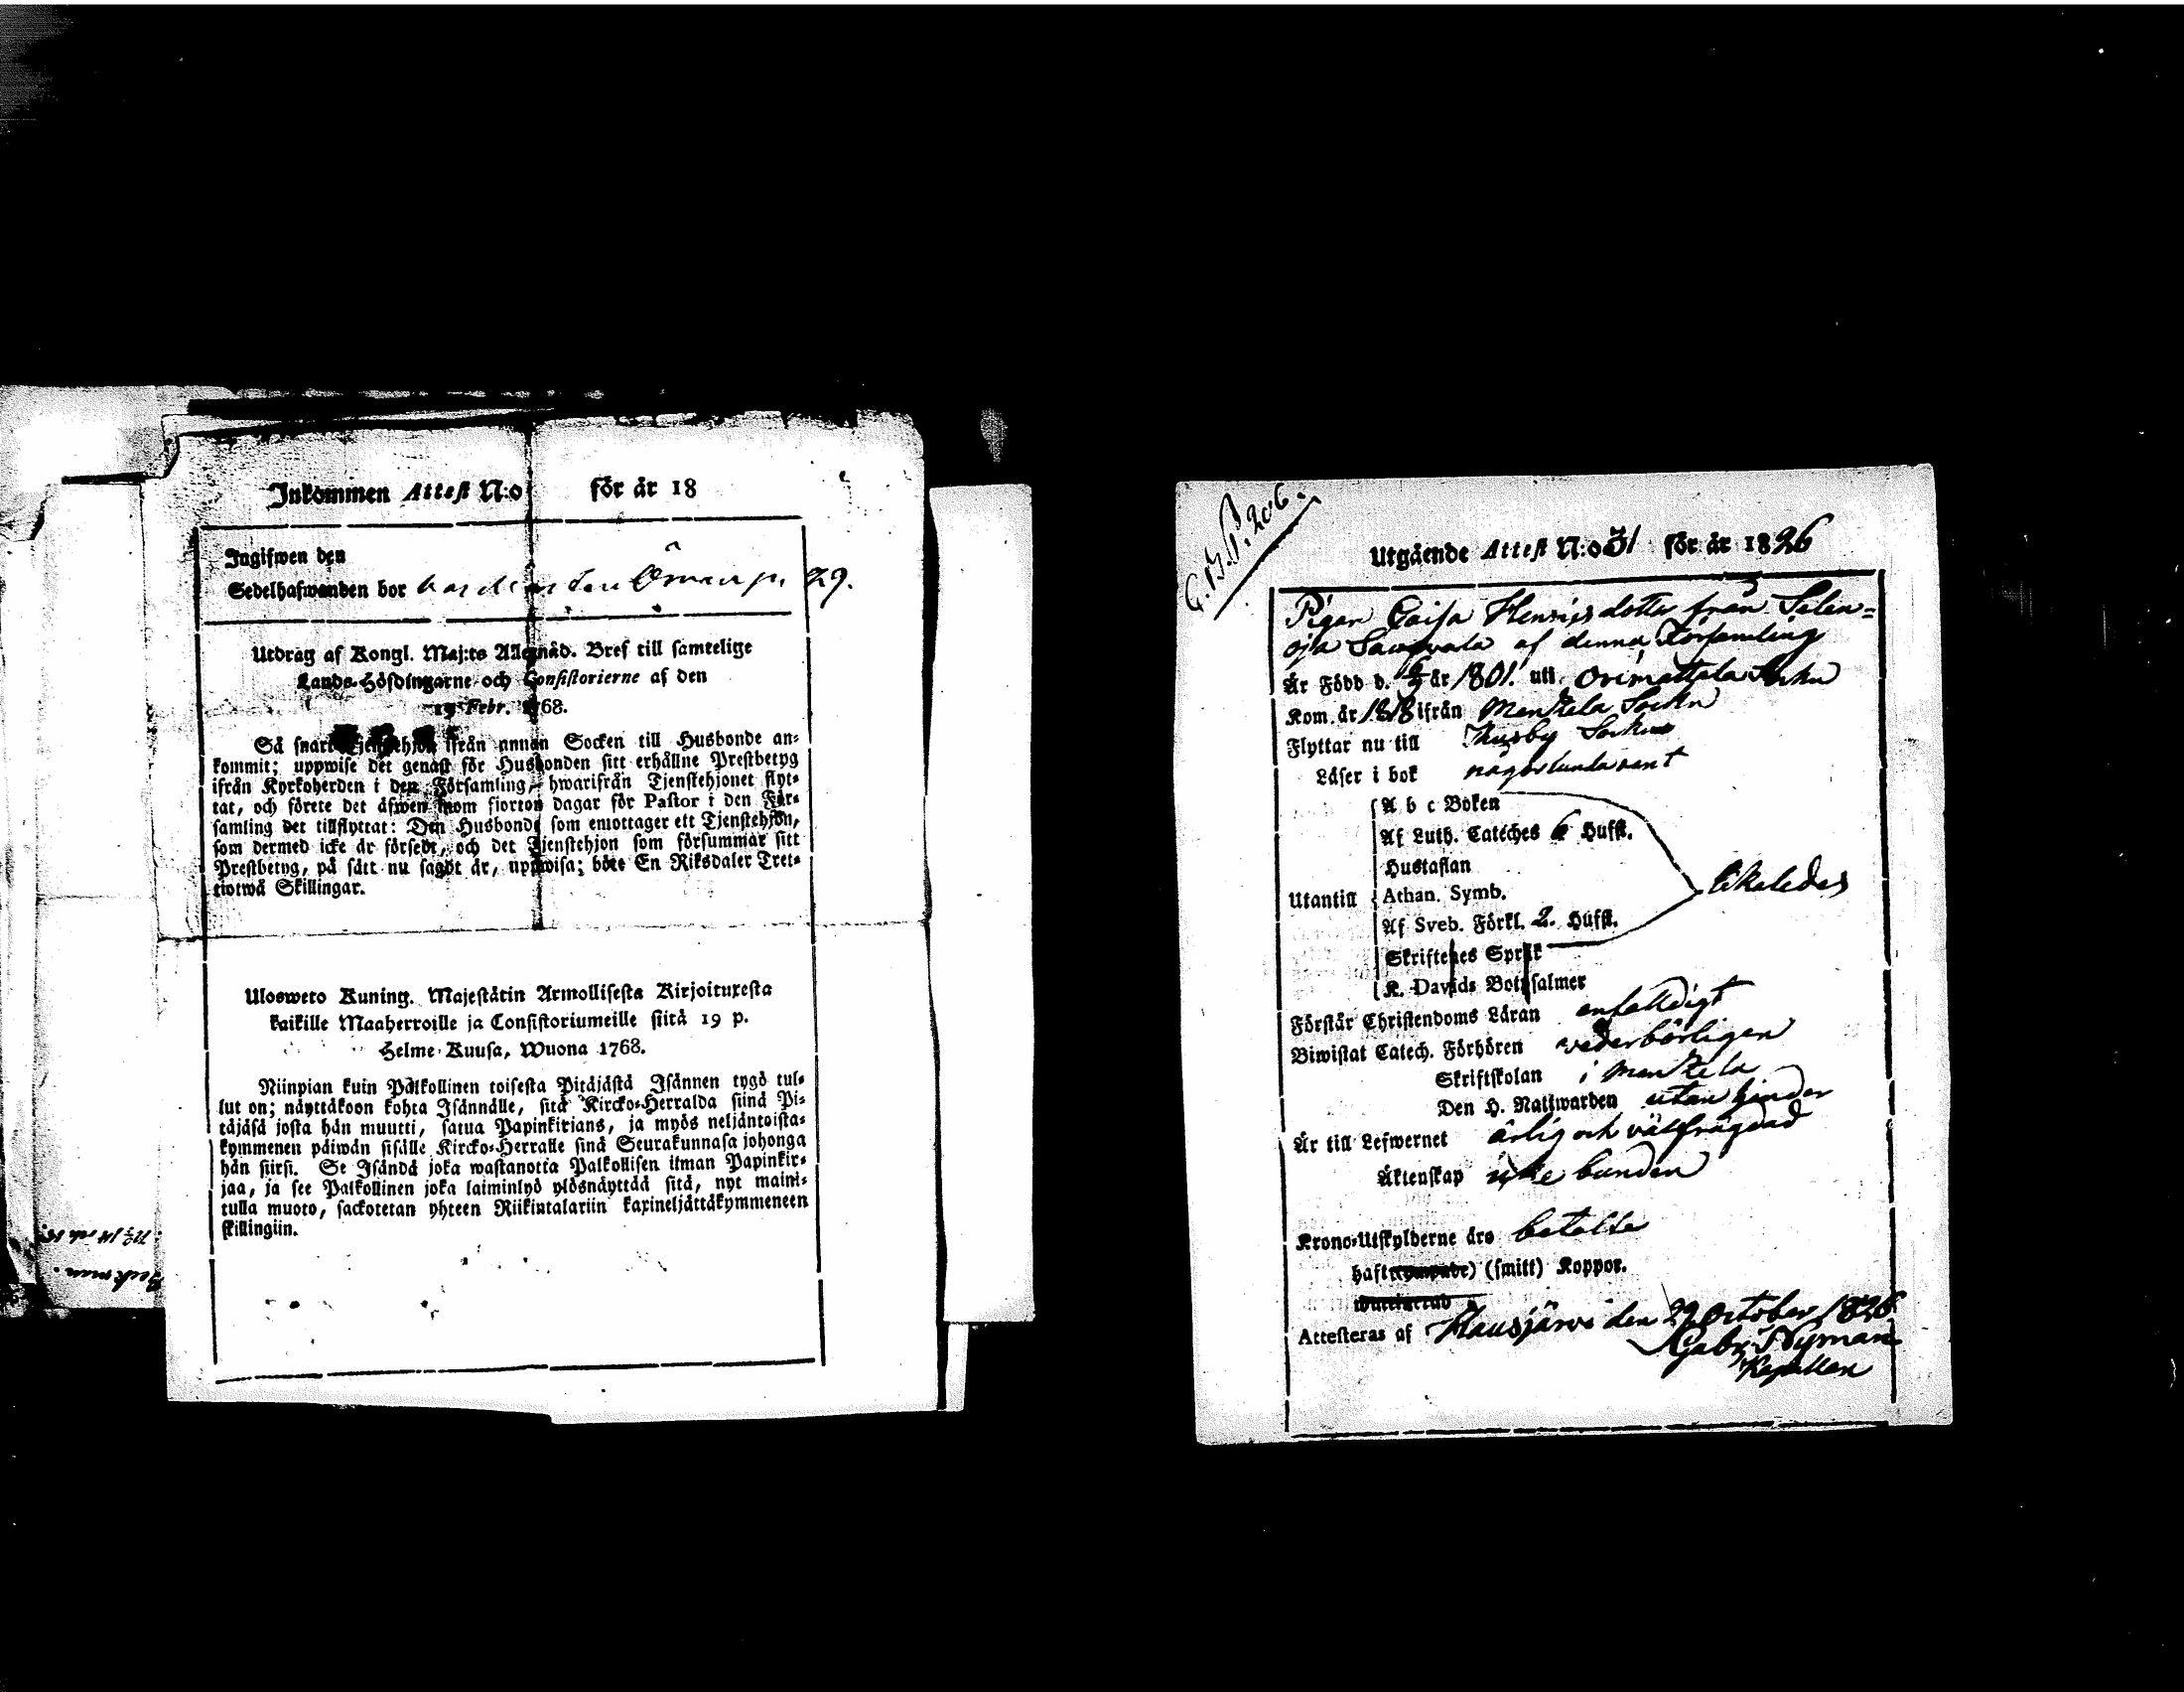 Inkommen Attest N:o för år 18
Ingifwen den
Sedelhafwanden bor 29.
Utdrag af Kongl. Maj:ts Allernåd. Bref till samtelige
Lands-Höfdingarne och Consistorierne af den
19 Febr. 1768.
Så snart Tjenstehjon ifrån annan Socken till Husbonde an-
kommit; uppwise det genast för Husbonden sitt erhållne Prestbetyg
ifrån Kyrkoherden i den Församling, hwarifrån Tjenstehjonet flyt-
tat, och förete det äfwen inom fiorton dagar för Pastor i den För-
samling det tillflyttat: Den Husbonde som emottager ett Tjenstehjon,
som dermed icke är försedt, och det Tjenstehjon som försummar sitt
Prestbetyg, på sätt nu sagdt är, uppwisa; böte En Riksdaler Tret-
tiotwå Skillingar.
Ulosweto Kuning. Majestätin Armollisesta Kirjoituxesta
kaikille Maaherroille ja Consistoriumeille siitä 19 p.
Helme-Kuusa, Wuona 1768.
Niinpian kuin Palkollinen toisesta Pitäjästä Isännen tygö tul-
lut on; näyttäkoon kohta Isännälle, sitä Kircko-Herralda siinä Pi-
täjäsä josta hän muutti, satua Papinkirjans, ja myös neljäntoista-
kymmenen päiwän sisälle Kircko-Herralle sinä Seurakunnasa johonga
hän siirsi. Se Isändä joka wastanotta Palkollisen ilman Papinkir-
jaa, ja see Palkollinen joka laiminlyö ylösnäyttää sitä, nyt maini-
tulla muoto, sackotetan yhteen Riikintalariin kaxineljättäkymmeneen
skillingiin.
C.B.P. 206.
Utgående Attest N:o 31 för år 1826
Pigan Caisa Henrics dotter från Selen=
oja af denna Församling
Är Född d. år 1801. uti Orimattala Sockn
Kom. år 1818 ifrån Mentzela Sockn
Flyttar nu till Thusby Sockn
Läser i bok någorlunda rent
A b c Boken
Af Luth. Cateches 6 Hufst.
Hustaflan
Utantill Athan. Symb. likaledes
Af Sveb. Förkl. 2. Hufst.
Skriftenes Språk
K. Davids Botpsalmer
Förstår Christendoms Läran enfaldigt
Biwistat Catech. Förhören vederbörligen
Skriftskolan i Mentzela
Den H. Nattwarden utan hinder
Är till Lefwernet ärlig och välfrägdad
Äktenskap icke bunden
Krono-Utskylderne äro betalte
haft (smitt) Koppor.
Attesteras af Hausjärvi den 29 October 1826.
Gabr. Nyman
Kapellan